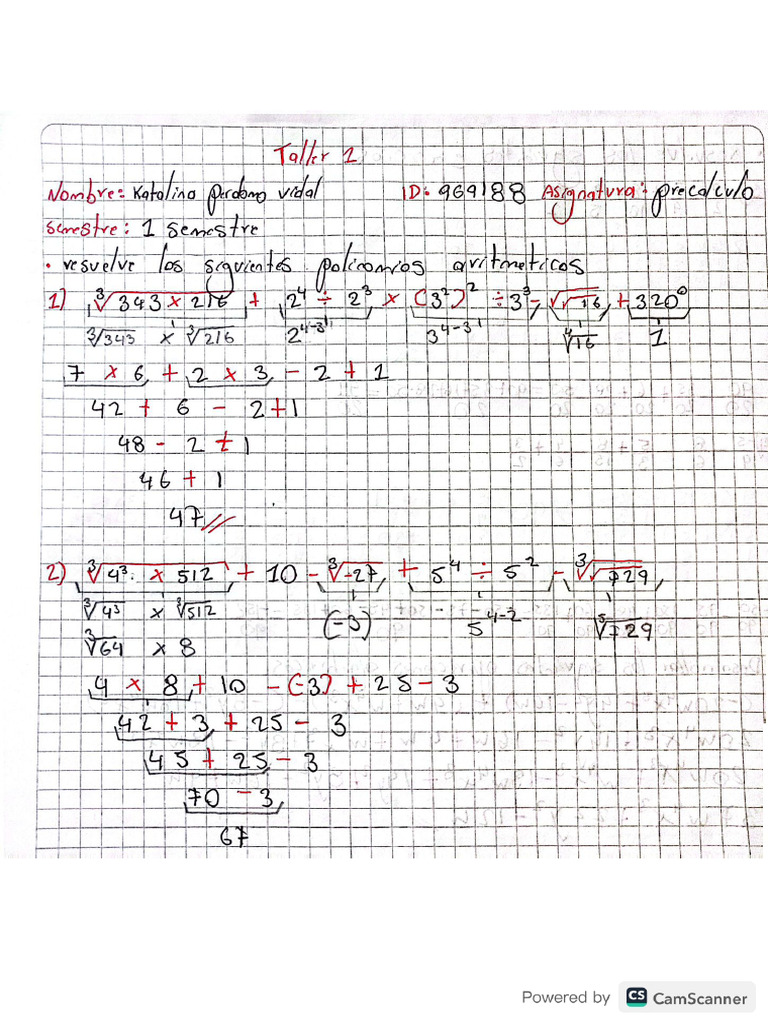 Taller 1
Nombre: Katalina Perdomo vidal ID: 969188 Asignatura: precalculo
semestre: 1 semestre
• resuelve los siguientes polinomios aritmeticos
1) ∛(343 x 216) + 2⁴ ÷ 2³ x (3²)² ÷ 3³ - √√16 + 320⁰
∛343 x ∛216 2⁴⁻³' 3⁴⁻³' ∜16 1
7 x 6 + 2 x 3 - 2 + 1
42 + 6 - 2 + 1
48 - 2 + 1
46 + 1
47//
2) ∛(4³ · x 512) + 10 - ∛-27 + 5⁴ ÷ 5² - ∛√729
∛4³ x ∛512 (-3) 5⁴⁻² ⁵√729
∛64 x 8
4 x 8 + 10 - (-3) + 25 - 3
42 + 3 + 25 - 3
45 + 25 - 3
70 - 3
67
Powered by CS CamScanner